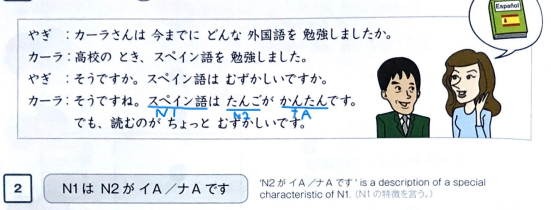 Español
やぎ：カーラさんは 今までに どんな 外国語を 勉強しましたか。
カーラ：高校の とき、スペイン語を 勉強しました。
やぎ：そうですか。スペイン語は むずかしいですか。
カーラ：そうですね。スペイン語は たんごが かんたんです。
N1 N2 ナA
でも、読むのが ちょっと むずかしいです。
2 N1は N2が イA／ナAです 'N2が イA／ナAです' is a description of a special
characteristic of N1. (N1の特徴を言う。)